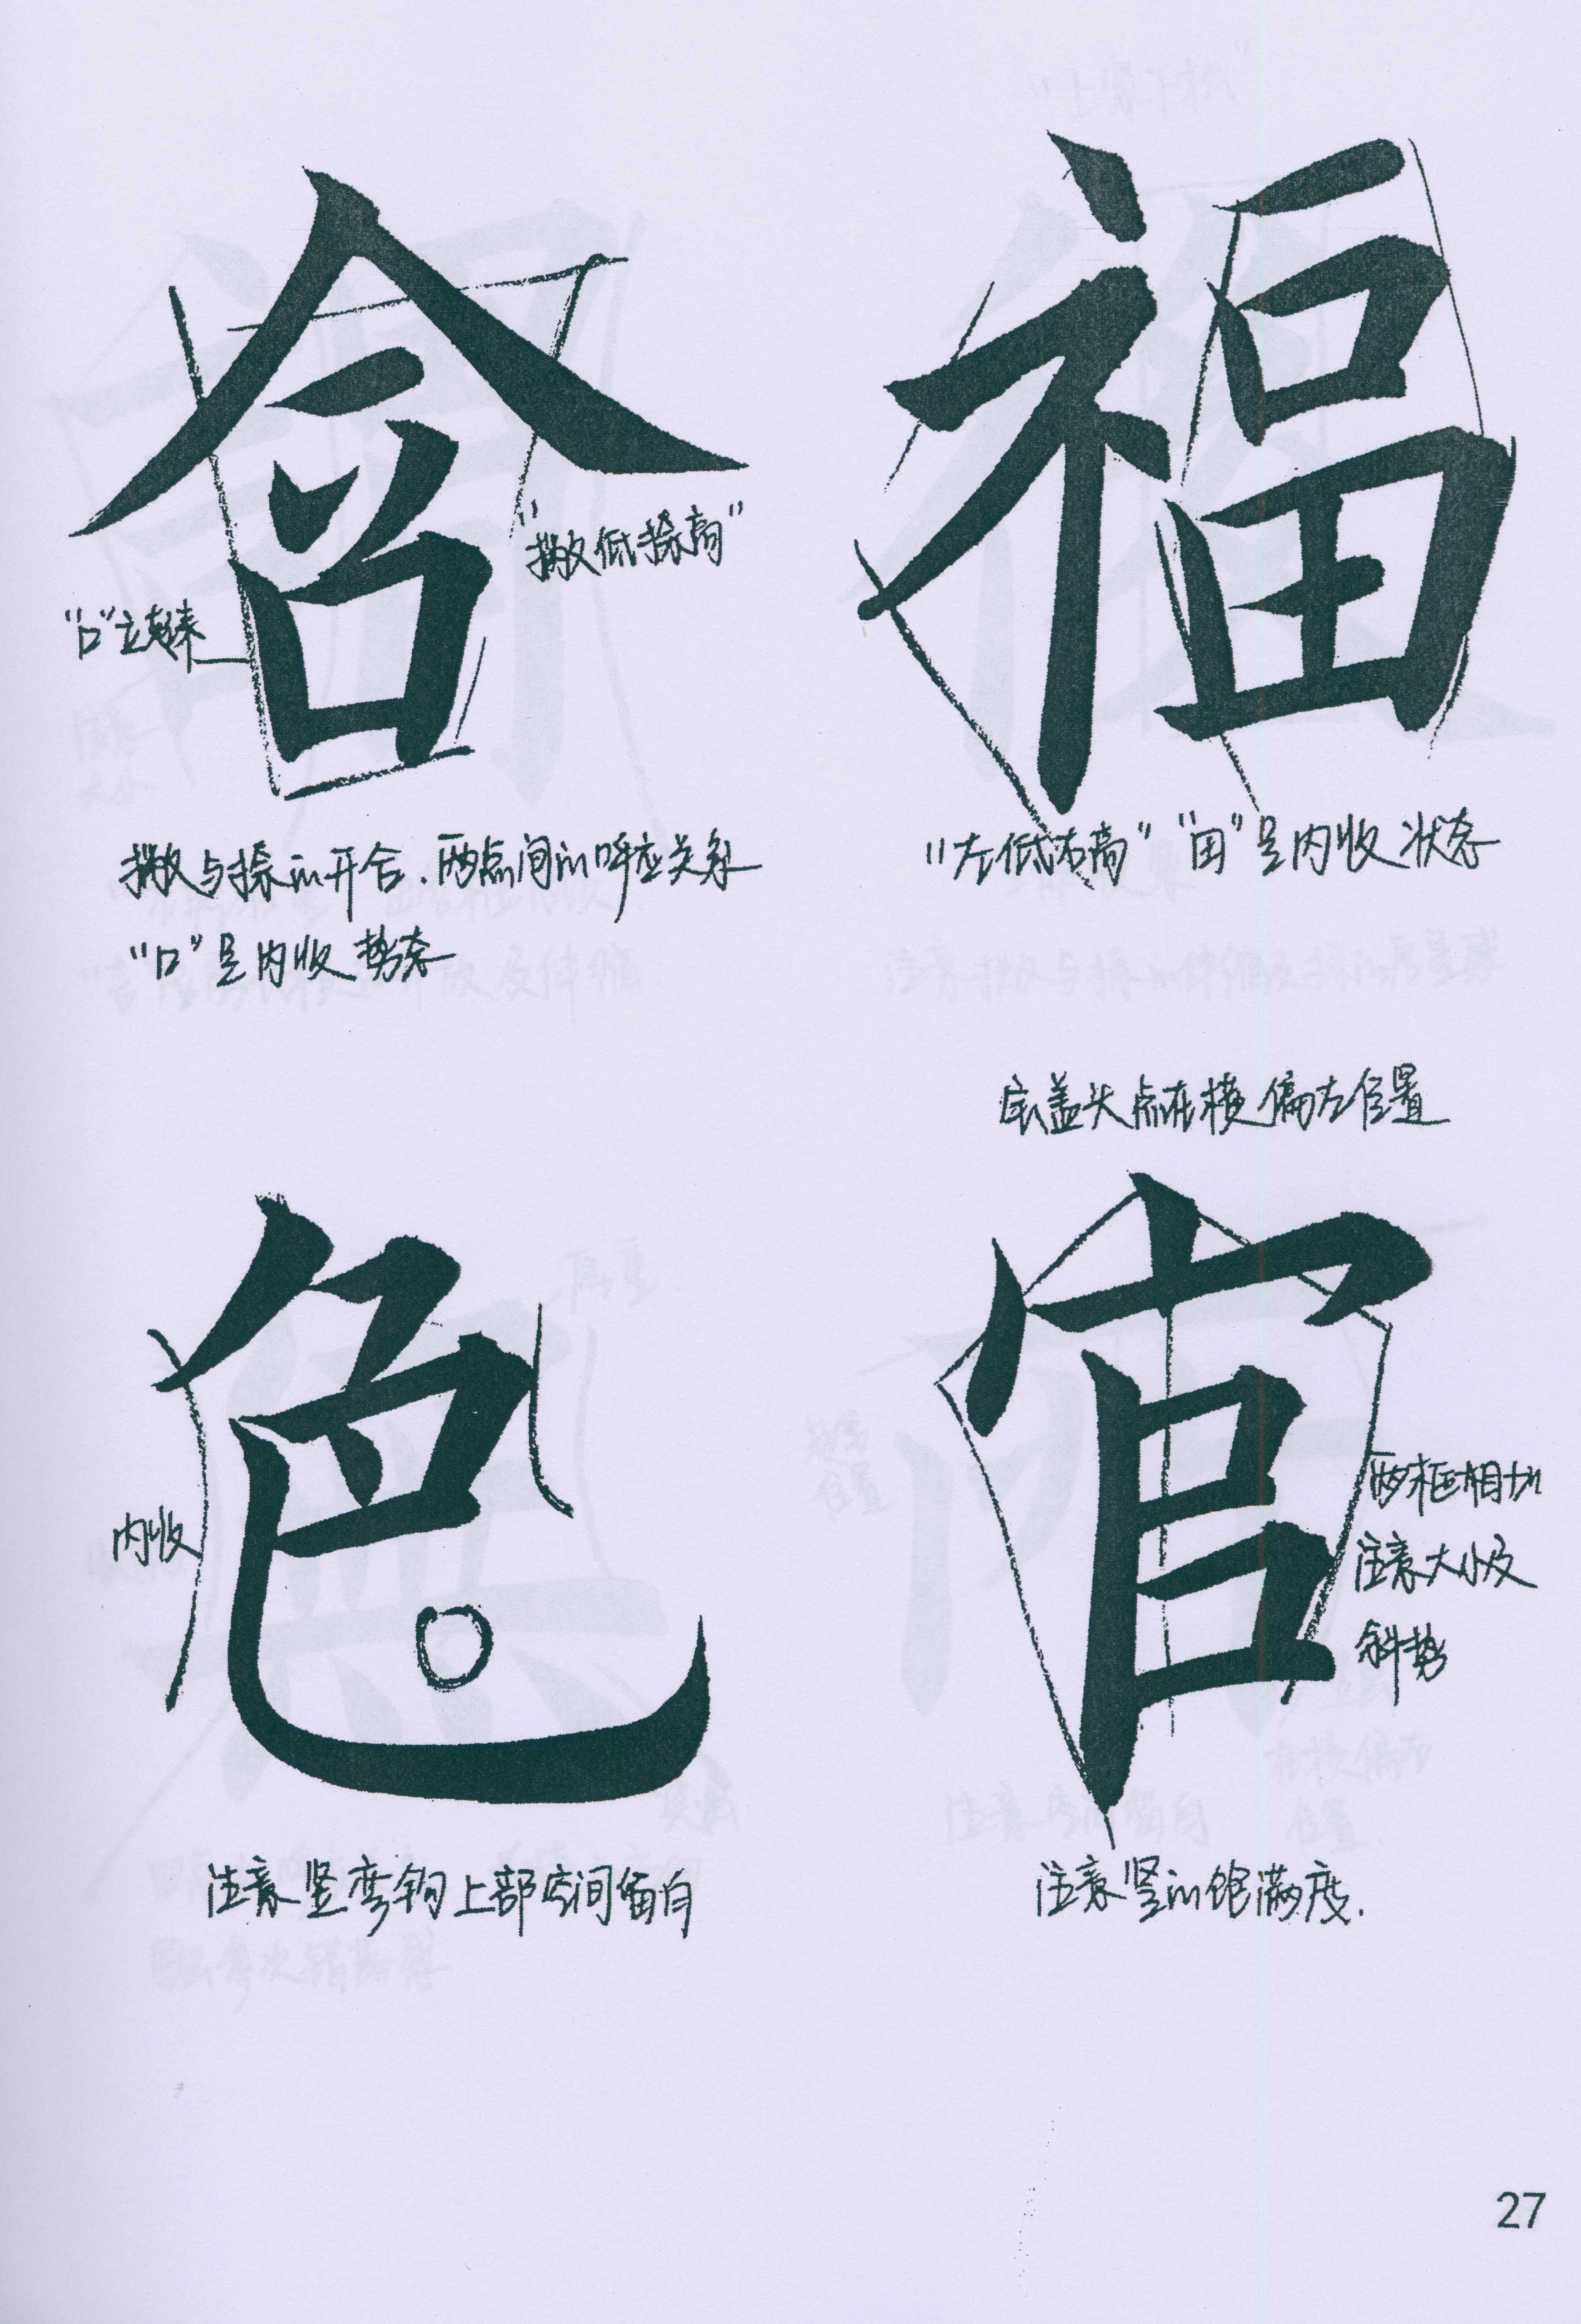 含
福
"撇低捺高"
"口"立起来
撇与捺的开合.两点间的呼应关系
"口"呈内收势态
"左低右高""田"呈内收状态
宝盖头点在横偏左位置
色
官
内收
两框相切
注意大小及
斜势
注意竖弯钩上部空间留白
注意竖的饱满度.
27